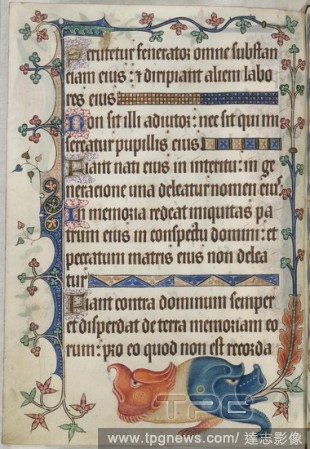 Scrutetur fenerator omne substan
ciam eius: & diripiant alieni labo
res eius
Non sit illi adiutor: nec sit qui mi
sereatur pupillis eius
Fiant nati eius in interitu: in ge
neracione una deleatur nomen eiuˀ
In memoria redeat iniquitas pa
trum eius in conspectu domini: et
peccatum matris eius non delea
tur
Fiant contra dominum semper
et disperdat de terra memoriam eo
rum: pro eo quod non est recorda
TPG
www.tpgnews.com/達志影像